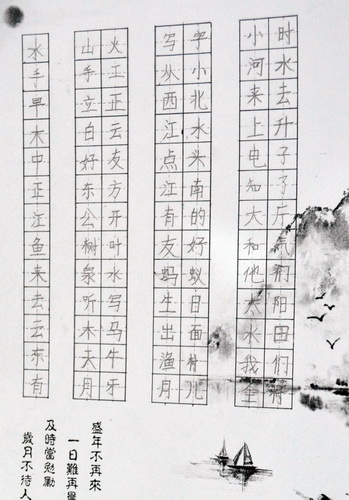 水手早木中正江鱼来去云东有
山火
手工
立正
白云
好友
东方
公开
树叶
泉水
听写
木马
天牛
月牙
写字
从小
西北
江水
点头
江南
有的
友好
蚂蚁
生日
出面
渔村
月儿
小时
河水
来去
上升
电子
知了
大厅
和气
他们
太阳
水田
我们
全
盛年不再來
一日難再晨
及時當勉勵
歲月不待人